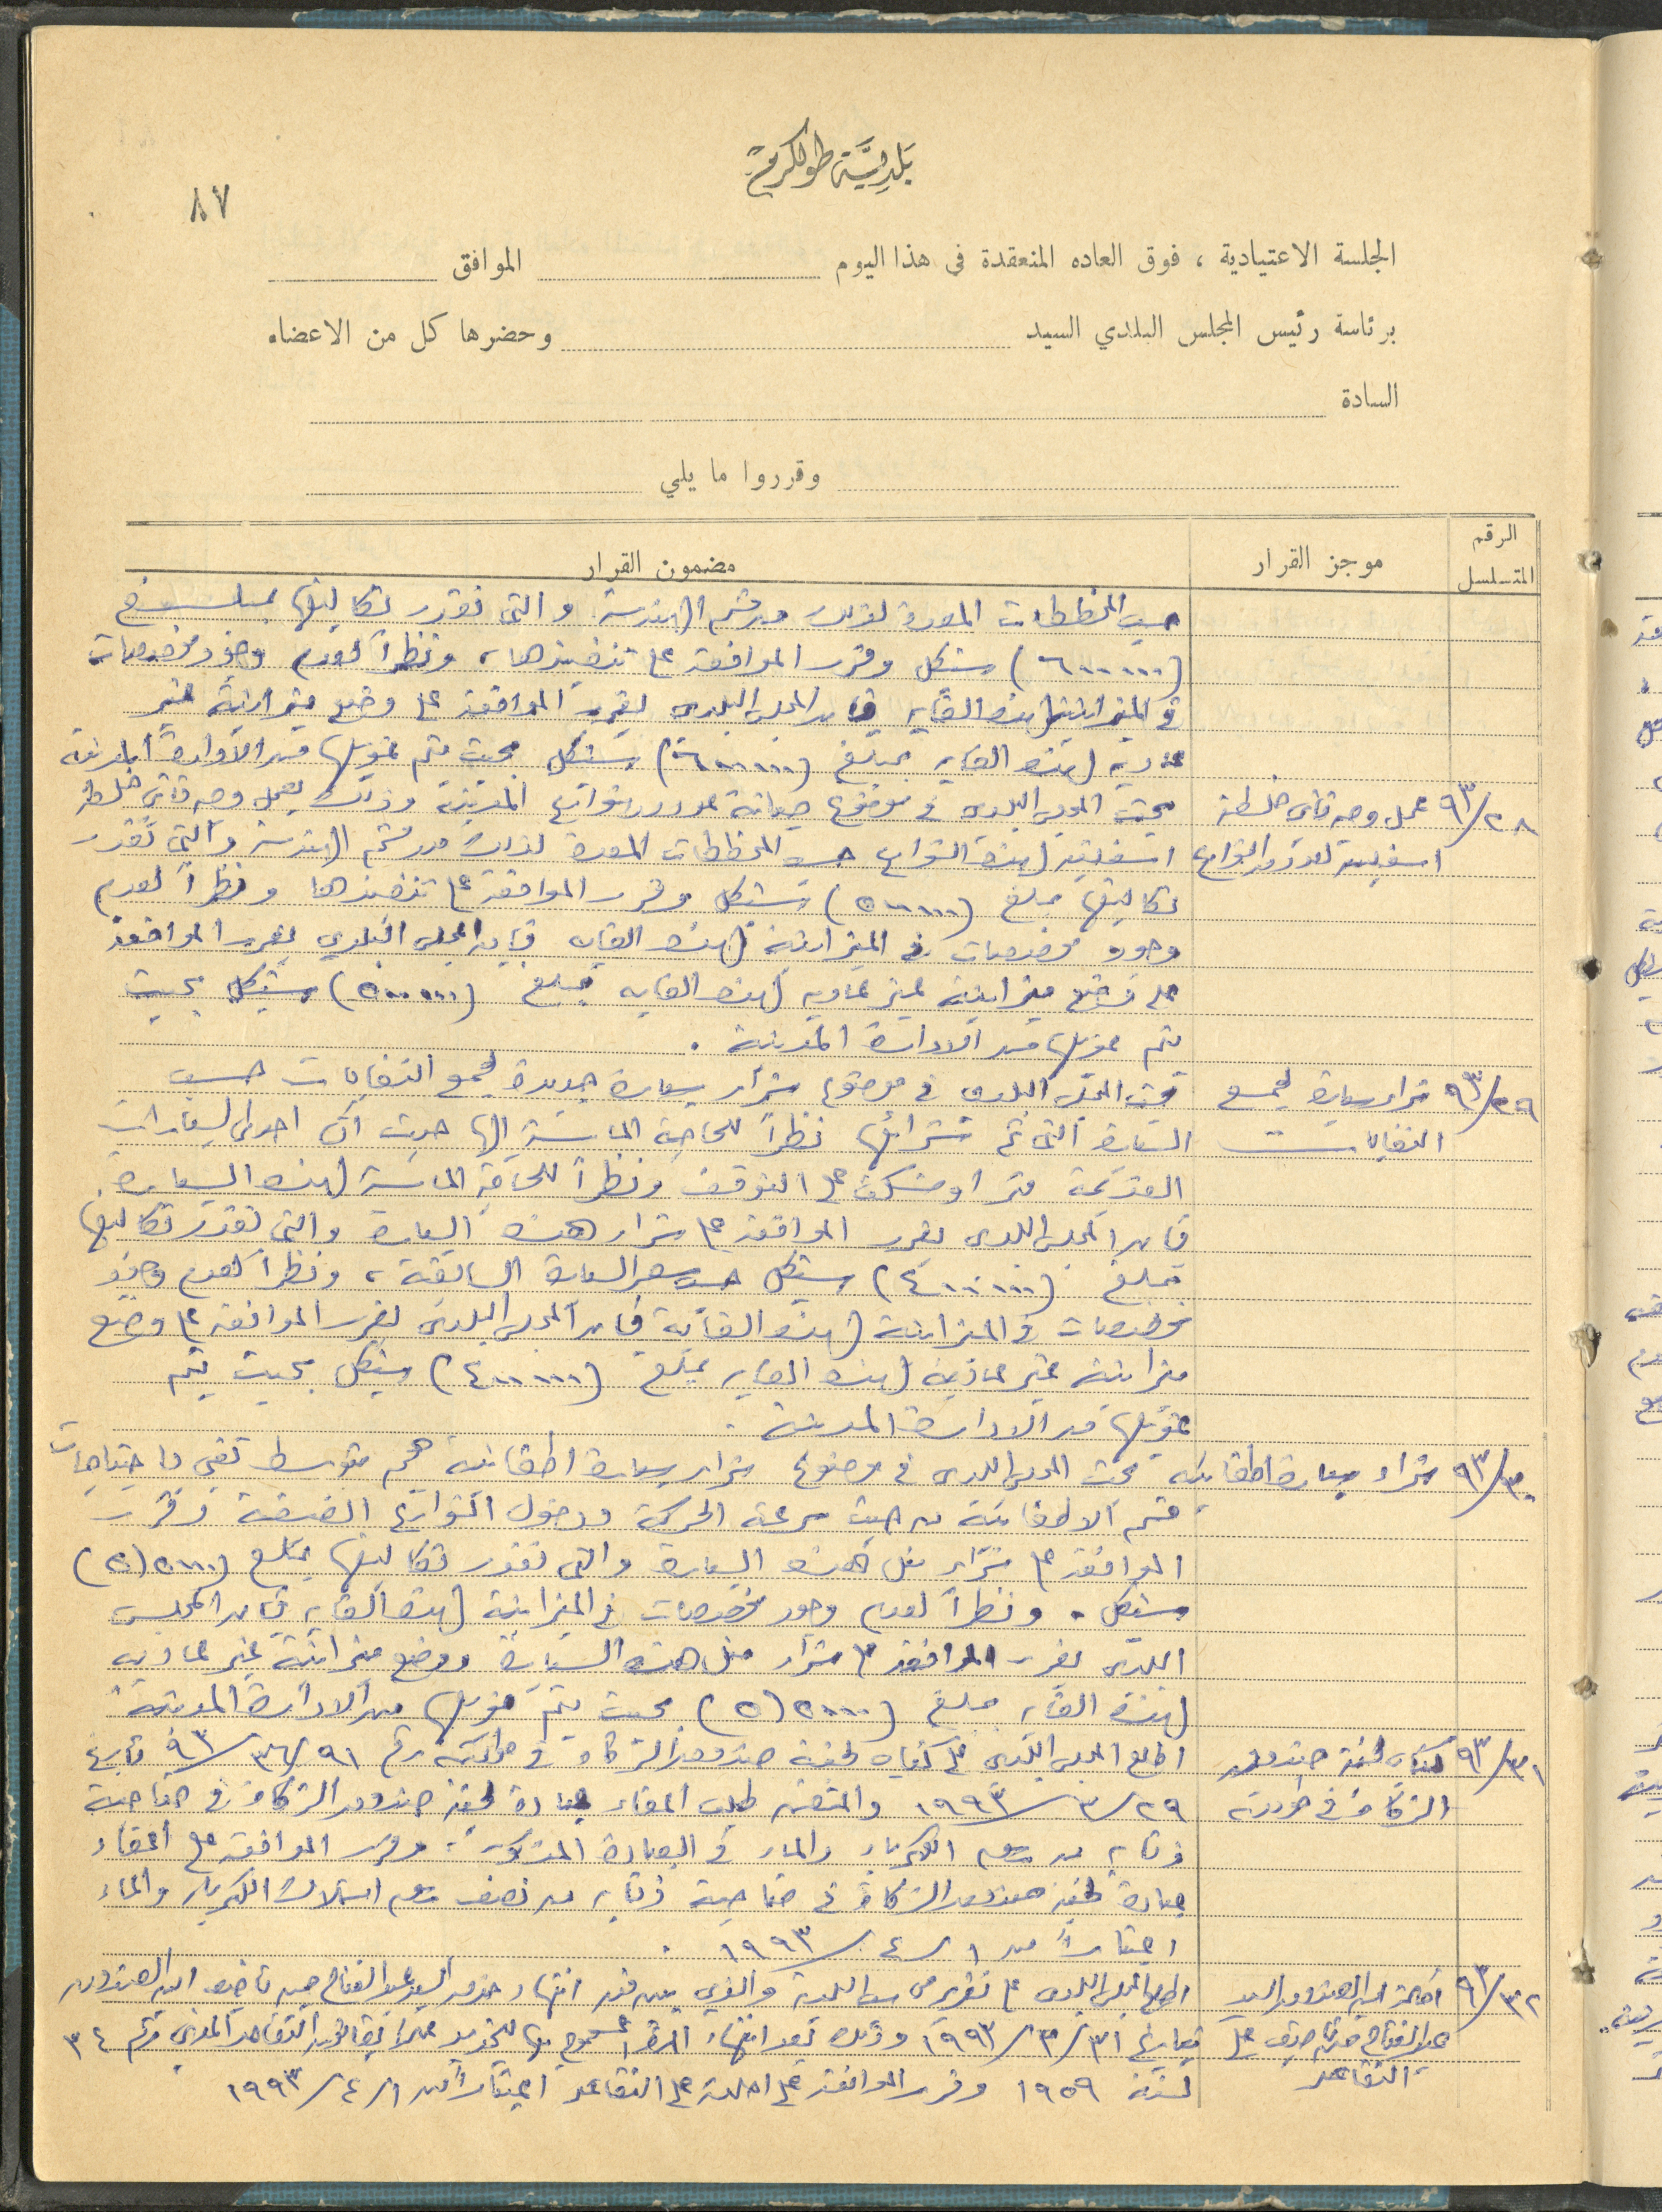 بلدية طولكرم
٨٧
الجلسة الاعتيادية ، فوق العاده المنعقدة في هذا اليوم الموافق
برئاسة رئيس المجلس البلدي السيد وحضرها كل من الاعضاء
السادة
وقرروا ما يلي
الرقم المتسلسل موجز القرار مضمون القرار
حسب المخططات المعدة لذلك من قسم الهندسة والتي تقدر تكاليفها بمبلغ
(٦٠٠٠٠٠) شيكل وقرر الموافقة على تنفيذها، ونظراً لعدم وجود مخصصات
في الميزانية لهذه الغاية فان المجلس البلدي يقرر الموافقة على وضع ميزانية غير
عادية لهذه الغاية بمبلغ (٦٠٠٠٠٠) شيكل بحيث يتم تمويلها من الادارة المدنية
٩٣/٢٨ عمل وجه ثاني خلطة بحث المجلس البلدي في موضوع صيانة عدد من شوارع المدينة وذلك بعمل وجه ثاني خلطة
اسفلتية لعدد من الشوارع اسفلتية لهذه الشوارع حسب المخططات المعدة لذلك من قسم الهندسة والتي تقدر
تكاليفها بمبلغ (٥٠٠٠٠٠) شيكل وقرر الموافقة على تنفيذها ونظراً لعدم
وجود مخصصات في الميزانية لهذه الغاية فان المجلس البلدي يقرر الموافقة
على وضع ميزانية غير عادية لهذه الغاية بمبلغ (٥٠٠٠٠٠) شيكل بحيث
يتم تمويلها من الادارة المدنية .
٩٣/٢٩ شراء سيارة لجمع بحث المجلس البلدي في موضوع شراء سيارة جديدة لجمع النفايات حسب
النفايات السيارة التي تم شرائها نظراً للحاجة الماسة اليها حيث أن احدى السيارات
القديمة اوشكت على التوقف ونظراً للحاجة الماسة لهذه السيارة
فان المجلس البلدي يقرر الموافقة على شراء هذه السيارة والتي تقدر تكاليفها
بمبلغ (٤٠٠٠٠٠) شيكل حسب سعر السيارة السابقة، ونظراً لعدم وجود
مخصصات في الميزانية لهذه الغاية فان المجلس البلدي يقرر الموافقة على وضع
ميزانية غير عادية لهذه الغاية بمبلغ (٤٠٠٠٠٠) شيكل بحيث يتم
تمويلها من الادارة المدنية .
٩٣/٣٠ شراء سيارة اطفائية بحث المجلس البلدي في موضوع شراء سيارة اطفائية حجم متوسط تفي باحتياجات
قسم الاطفائية من حيث سرعة الحركة ودخول الشوارع الضيقة وقرر
الموافقة على شراء مثل هذه السيارة والتي تقدر تكاليفها بمبلغ
شيكل . ونظراً لعدم وجود مخصصات في الميزانية لهذه الغاية فان المجلس
البلدي يقرر الموافقة على شراء مثل هذه السيارة ووضع ميزانية غير عادية
لهذه الغاية بمبلغ بحيث يتم تمويلها من الادارة المدنية .
٩٣/٣١ كتاب لجنة صندوق اطلع المجلس البلدي على كتاب لجنة صندوق الزكاة رقم ٩٣/٣٦/٩١ تاريخ
الزكاة في ٢٩/٣/١٩٩٣ والمتضمن طلب اعفاء عيادة لجنة صندوق الزكاة في ضاحية
ذنابة من رسم الكهرباء والماء في العيادة المذكورة وقرر الموافقة على اعفاء
عيادة لجنة صندوق الزكاة في ضاحية ذنابة من نصف رسم استهلاك الكهرباء والماء
اعتباراً من ١/٤/١٩٩٣ .
٩٣/٣٢ احالة امين الصندوق السيد اطلع المجلس البلدي على تقرير البلدية والذي يبين فيه انتهاء خدمة السيد عبدالفتاح امين الصندوق
عبدالفتاح على بتاريخ ٣١/٣/١٩٩٣ وذلك بعد انتهاء المسموح بها للتقاعد المدني رقم ٣٤
التقاعد لسنة ١٩٥٩ وقرر الموافقة على احالته على التقاعد اعتباراً من ١/٤/١٩٩٣